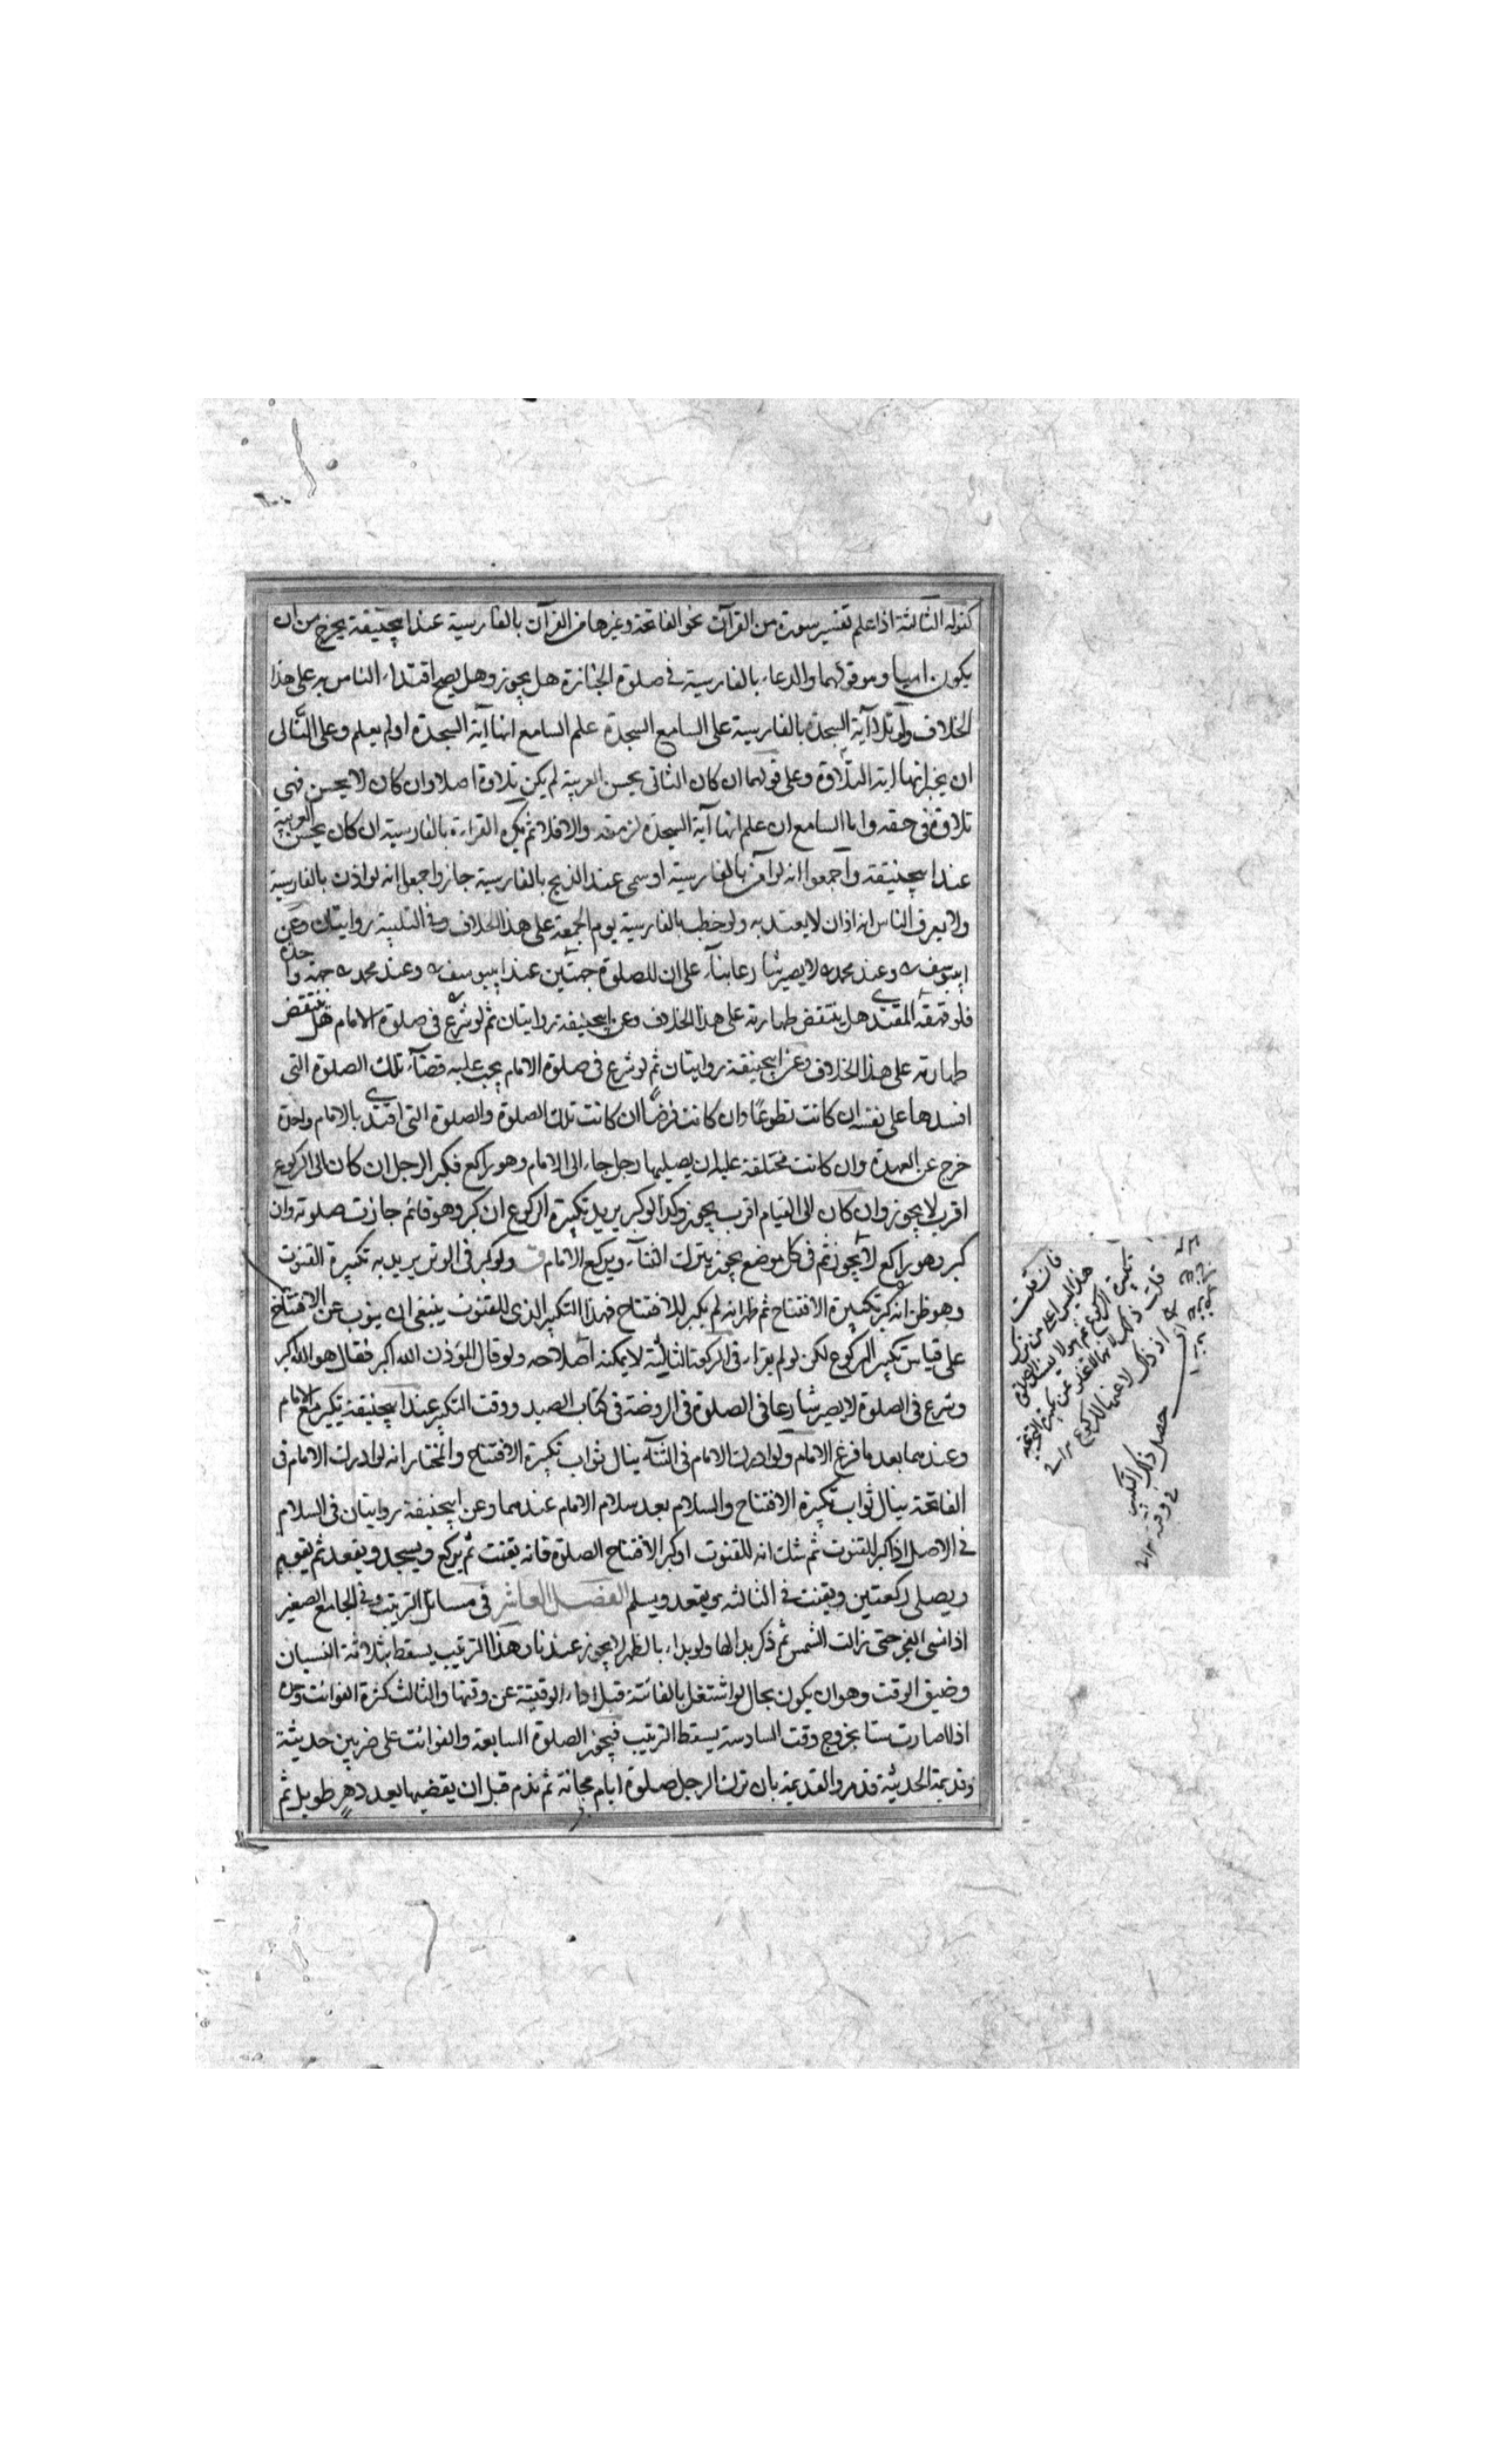 كقوله الثالثة اذا علم تفسير سورة من القرآن نحو الفاتحة وغيرها من القرآن بالفارسية عند ابيحنيفة يخرج من ان
يكون اميا وهو قولهما والدعاء بالفارسية في صلوة الجنازة هل يجوز وهل يصح اقتداء الناس به على هذا
الخلاف ولو تلا آية السجدة بالفارسية على السامع السجدة علم السامع انها آية السجدة او لم يعلم وعلى التالى
ان يخبر انها اية التلاوة وعلى قولهما ان كان الثانى يحسن العربية لم يكن تلاوة اصلا وان كان لا يحسن فهى
تلاوة فى حقه واما السامع ان علم انها آية السجدة لزمته والا فلا ثم يكره القراءة بالفارسية ان كان يحسن العربية
عند ابيحنيفة واجمعوا انه لو آمن بالفارسية او سمى عند الذبح بالفارسية جاز واجمعوا انه لو اذن بالفارسية
ولا يعرف الناس انه اذان لا يعتد به ولو خطب بالفارسية يوم الجمعة على هذا الخلاف وفى التلبية روايتان وعن
ابييوسف وعند محمد لا يصير شارعا بناء على ان للصلوة جهتين عند ابييوسف وعند محمد جهة واحدة
فلو قهقه المقتدى هل ينتقض طهارته على هذا الخلاف وعن ابيحنيفة روايتان ثم لو شرع فى صلوة الامام هل ينتقض
طهارته على هذا الخلاف وعن ابيحنيفة روايتان ثم لو شرع فى صلوة الامام يجب عليه قضاء تلك الصلوة التى
افسدها على نفسه ان كانت تطوعًا وان كانت فرضًا ان كانت تلك الصلوة والصلوة التى اقتدى بالامام واحدة
خرج عن العهدة وان كانت مختلفة عليه ان يصليها رجل جاء الى الامام وهو راكع فكبر الرجل ان كان الى الركوع
اقرب لا يجوز وان كان الى القيام اقرب يجوز وكذا لو كبر يريد تكبيرة الركوع ان كبر وهو قائم جازت صلوته وان
كبر وهو راكع لا يجوز ثم فى كل موضع يجوز يترك الثناء ويركع الامام ولو كبر فى الوتر يريد به تكبيرة القنوت
وهو ظن انه كبر تكبيرة الافتتاح ثم ظهر انه لم يكبر للافتتاح فهذا التكبير الذى للقنوت ينبغى ان ينوب عن الافتتاح
على قياس تكبير الركوع لكن لو لم يقراء فى الركعة الثالثة لا يمكنه اصلاحه ولو قال المؤذن الله اكبر فقال هو الله اكبر
وشرع فى الصلوة لا يصير شارعا فى الصلوة فى الروضة فى كتاب الصيد ووقت التكبير عند ابيحنيفة يكبر مع الامام
وعندهما بعد ما فرغ الامام ولو ادرك الامام فى الثناء ينال ثواب تكبيرة الافتتاح والمختار انه لو ادرك الامام فى
الفاتحة ينال ثواب تكبيرة الافتتاح والسلام بعد سلام الامام عندهما وعن ابيحنيفة روايتان فى السلام
فى الاصل اذا كبر للقنوت ثم شك انه للقنوت او كبر لافتتاح الصلوة فانه يقنت ثم يركع ويسجد ويقعد ثم يقوم
ويصلى ركعتين ويقنت فى الثالثة ويقعد ويسلم الفصل العاشر فى مسائل الترتيب وفى الجامع الصغير
اذا نسى الفجر حتى زالت الشمس ثم ذكر بدا لها ولو بداء بالظهر لا يجوز عندنا هذا الترتيب يسقط بثلاثة النسيان
وضيق الوقت وهو ان يكون بحال لو اشتغل بالفائتة قبل اداء الوقتية عن وقتها والثالث كثرة الفوائت وهى
اذا صارت ستا بخروج وقت السادسة يسقط الترتيب فيجوز الصلوة السابعة والفوائت على ضربين حديثة
وقديمة الحديثة قد مر والقديمة بان ترك الرجل صلوة ايام مجانة ثم ندم قبل ان يقضيها بعد دهر طويل ثم
فان قلت
تكبيرة الركوع
قلت ذلك
اذ ذاك
حصل ذلك التكبير